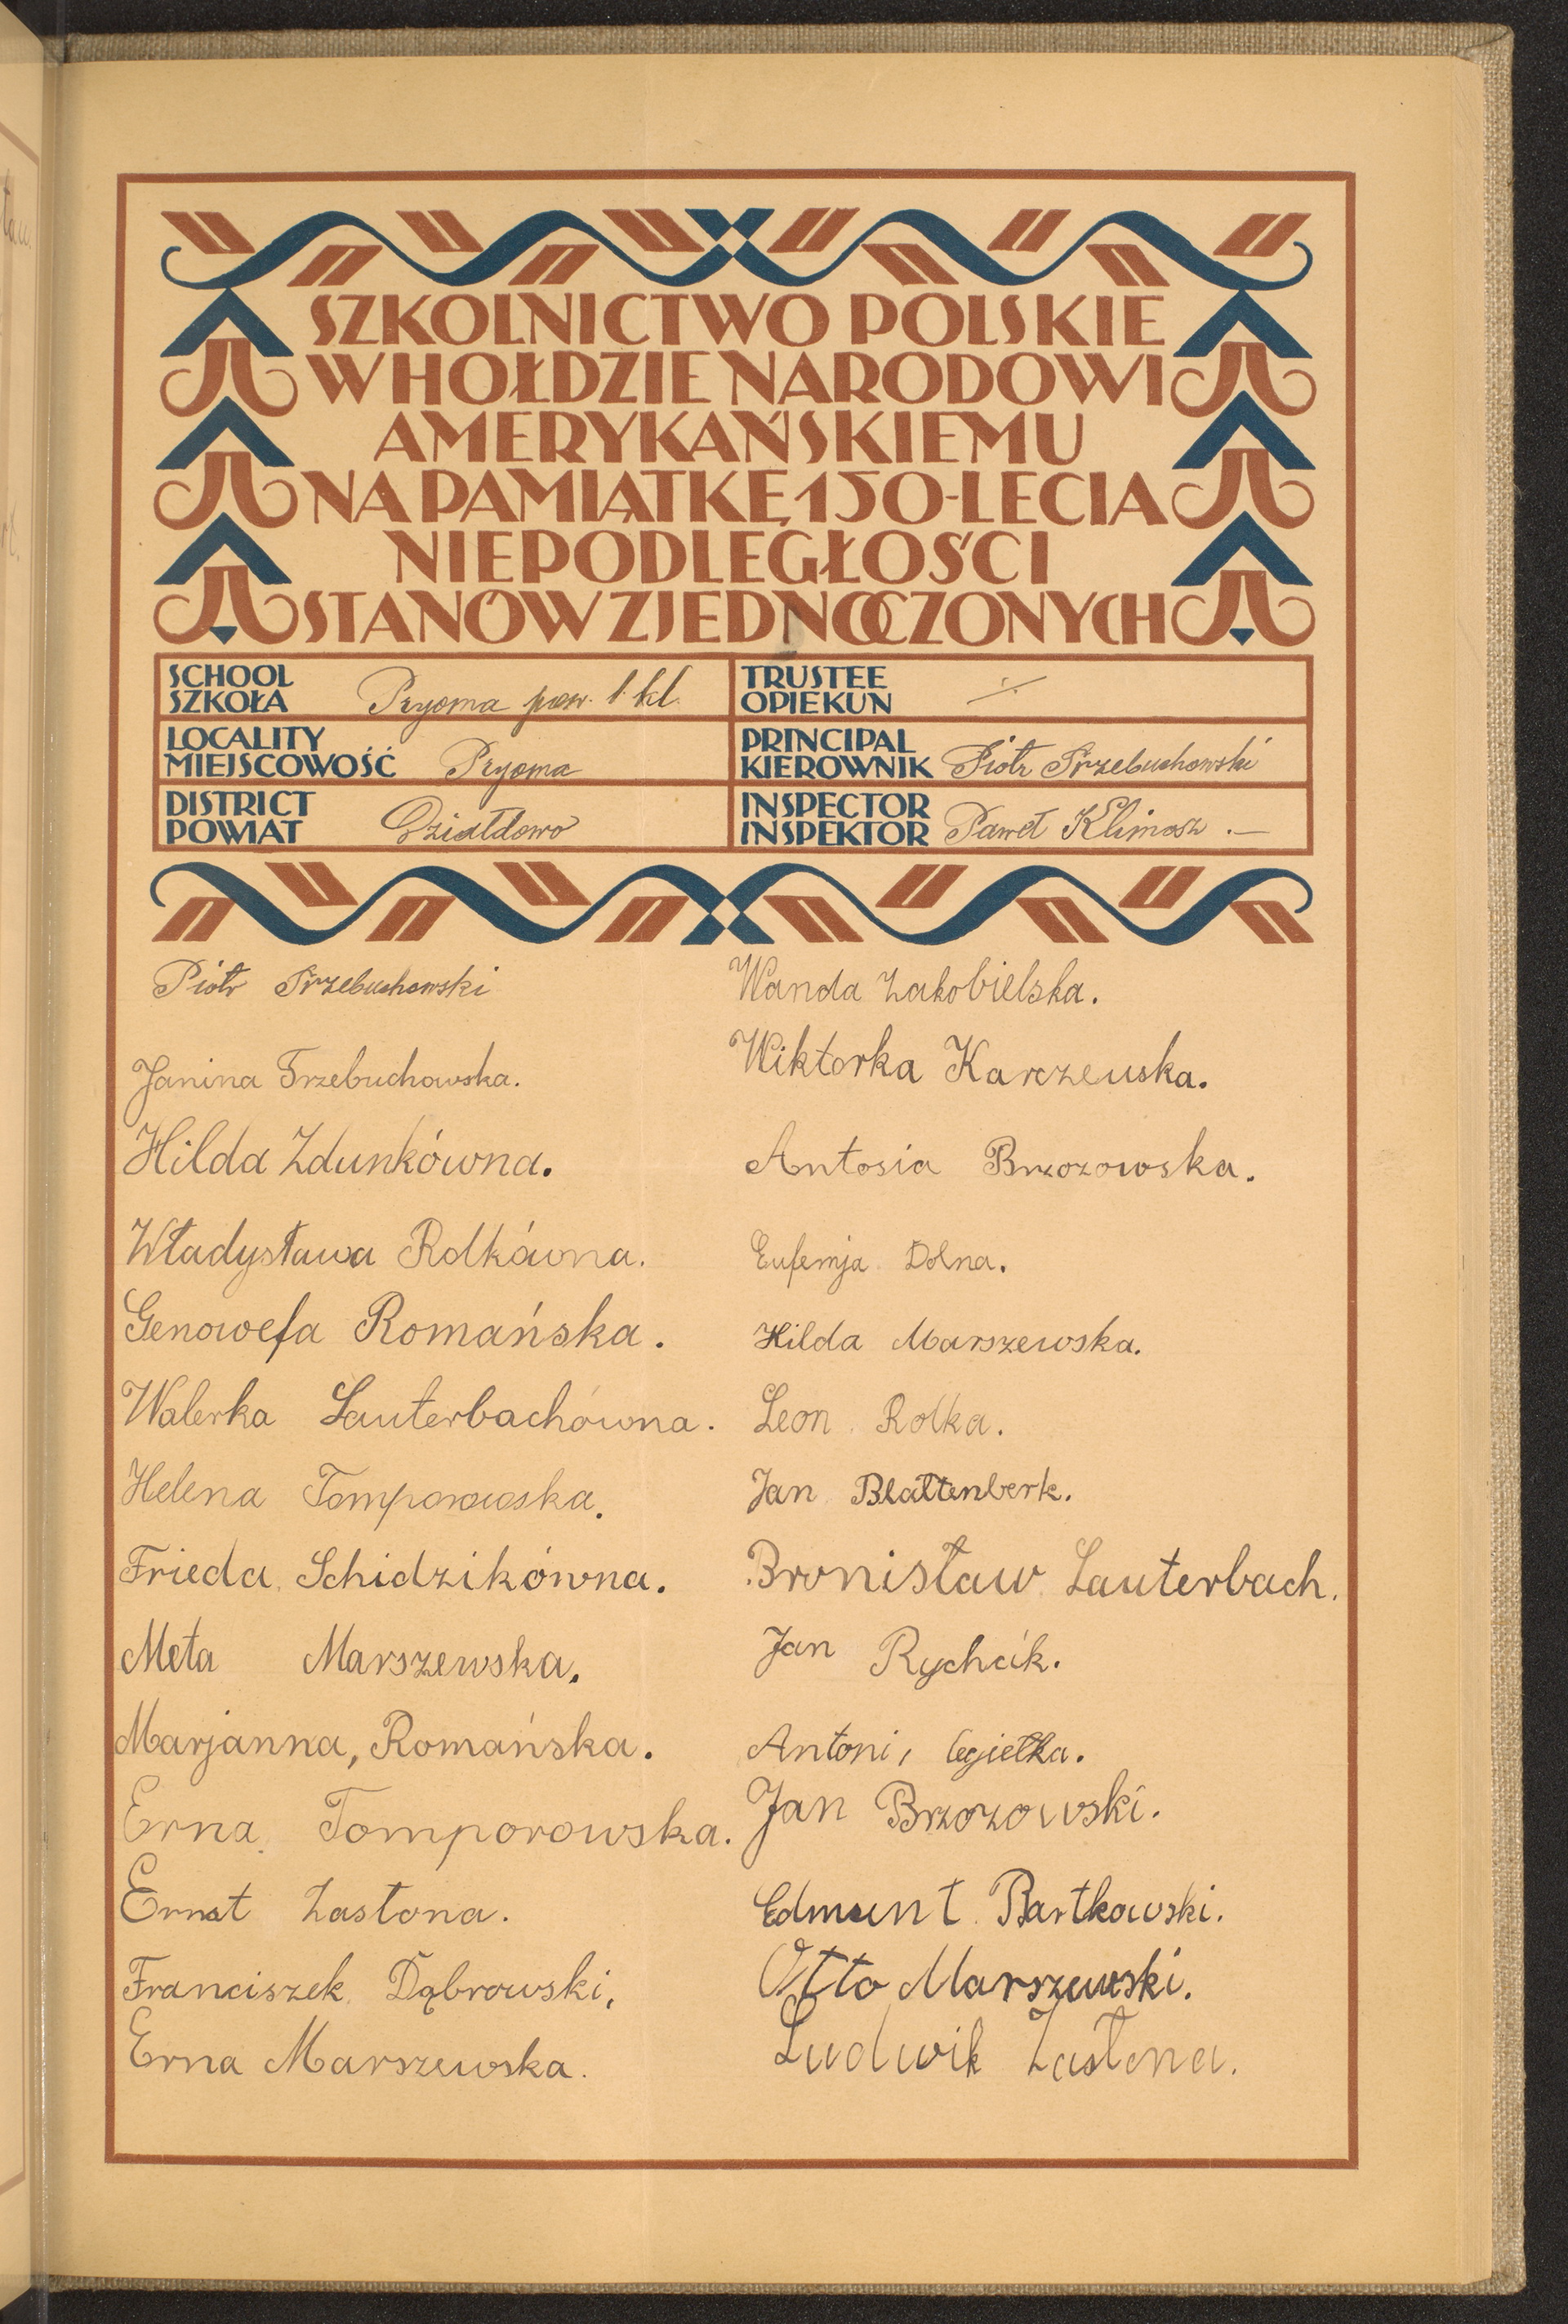 SZKOLNICTWO POLSKIE
W HOŁDZIE NARODOWI
AMERYKAŃSKIEMU
NA PAMIĄTKĘ 150-LECIA
NIEPODLEGŁOŚCI
STANÓW ZJEDNOCZONYCH
SCHOOL
SZKOŁA Pryoma pow. 1 kl.
TRUSTEE
OPIEKUN
LOCALITY
MIEJSCOWOŚĆ Pryoma
PRINCIPAL
KIEROWNIK Piotr Trzebuchowski
DISTRICT
POWIAT Działdowo
INSPECTOR
INSPEKTOR Paweł Klimosz .—
Piotr Trzebuchowski
Janina Trzebuchowska.
Hilda Zdunkówna.
Władysława Rolkówna.
Genowefa Romańska.
Walerka Lauterbachówna.
Helena Tomporowska.
Frieda Schidzikówna.
Meta Marszewska.
Marjanna, Romańska.
Erna Tomporowska.
Ernst Zastona.
Franciszek Dąbrowski,
Erna Marszewska.
Wanda Zakobielska.
Wiktorka Karczewska.
Antosia Brzozowska.
Eufemja Dolna.
Hilda Marszewska.
Leon Rolka.
Jan Blattenberk.
Bronisław Lauterbach.
Jan Rychcik.
Antoni,
Jan Brzozowski.
Edmunt Bartkowski.
Otto Marszewski.
Ludwik Zastona.